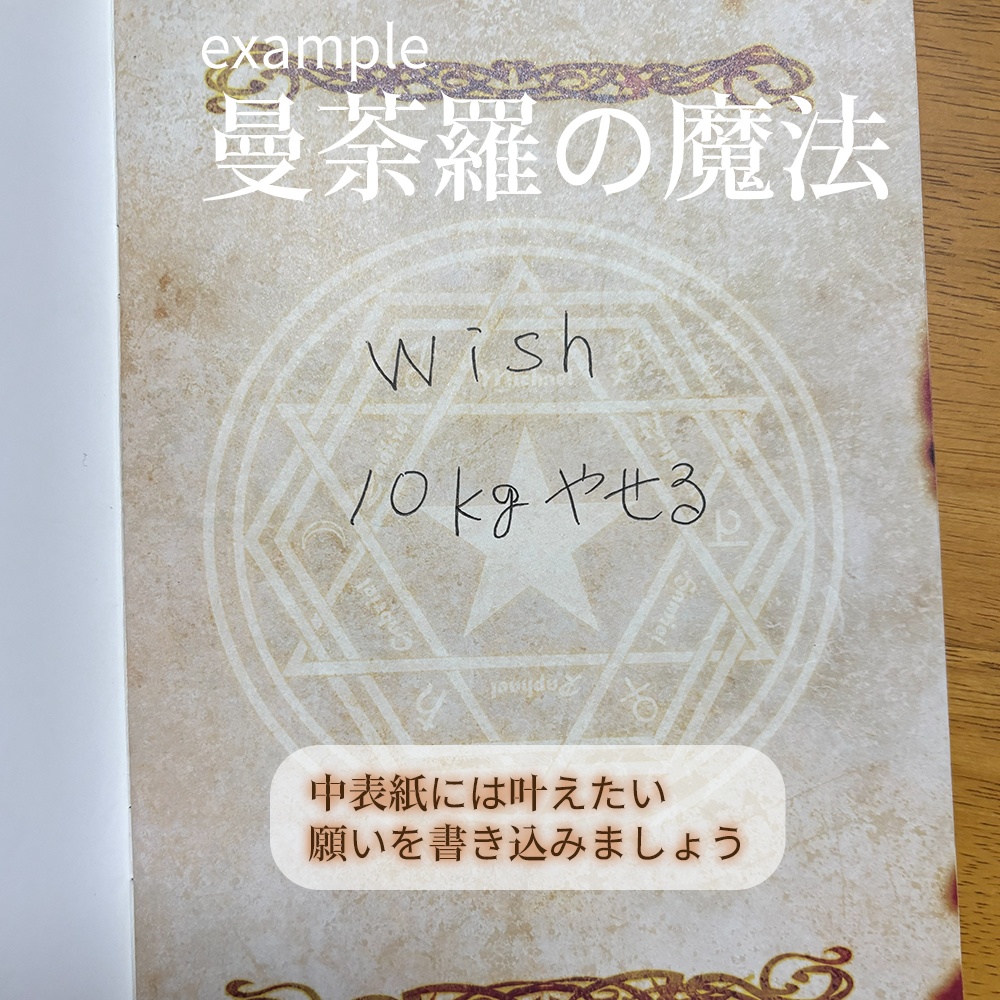 example
曼荼羅の魔法
wish
10kgやせる
Raphael
中表紙には叶えたい
願いを書き込みましょう